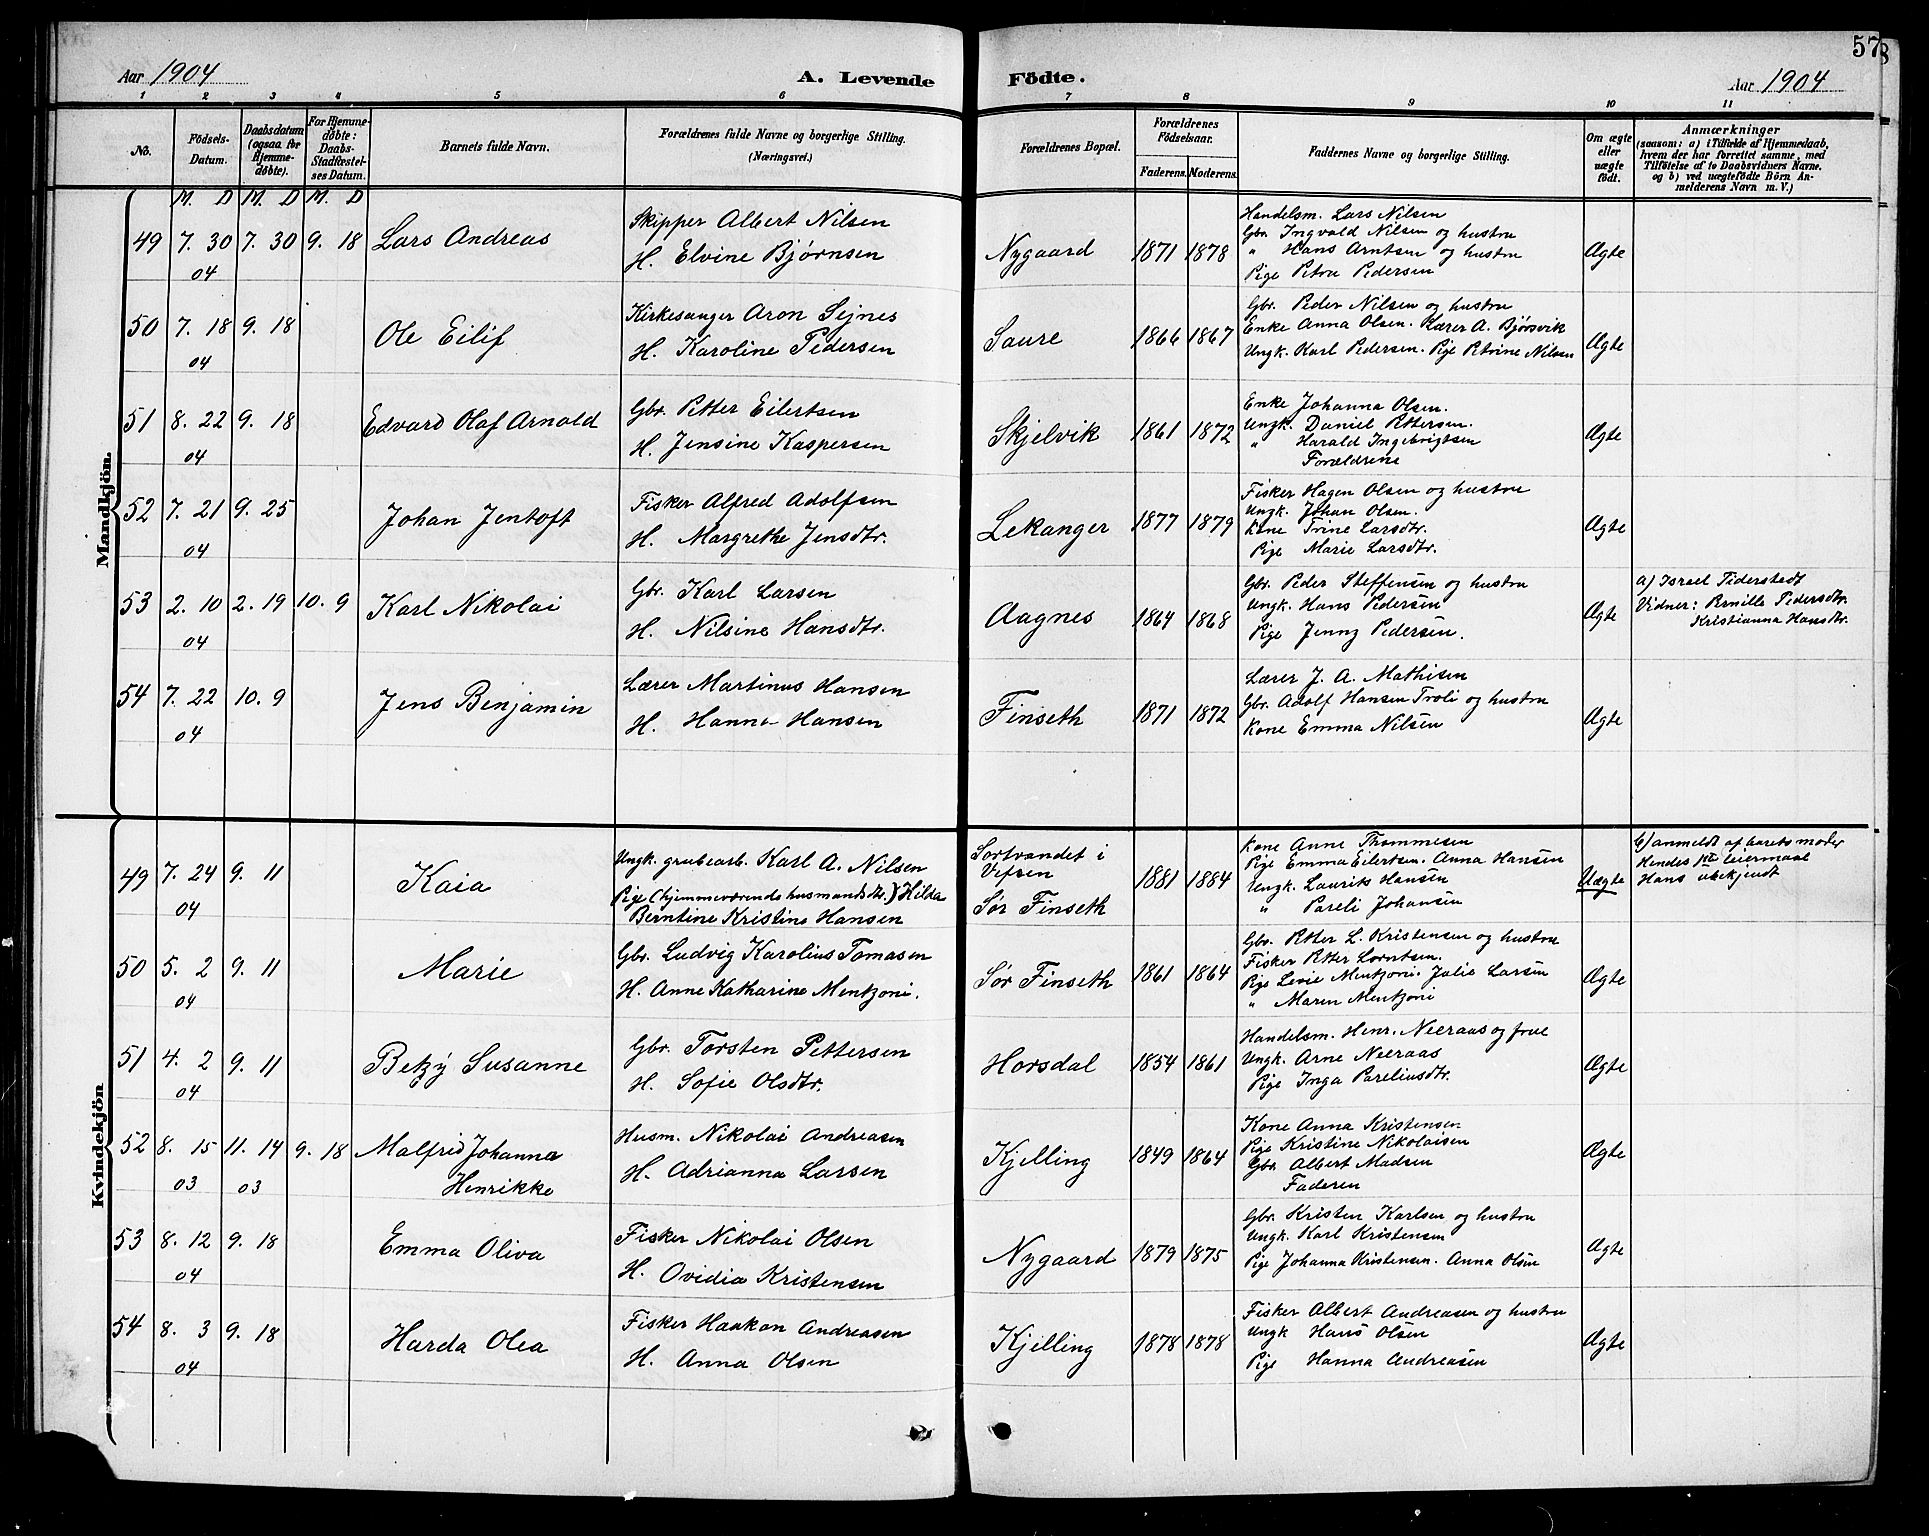 57
Aar 1904 A. Levende Födte. Aar 1904
1 2 3 4 5 6 7 8 9 10 11
No. Födsels-Datum. Daabsdatum (ogsaa for Hjemmedöbte). For Hjemmedöbte: Daabs-Stadfæstelses Datum. Barnets fulde Navn. Forældrenes fulde Navne og borgerlige Stilling. (Næringsvei.) Forældrenes Bopæl. Forældrenes Födselsaar. Faderens. Moderens. Faddernes Navne og borgerlige Stilling. Om ægte eller uægte födt. Anmærkninger (saasom: a) i Tilfælde af Hjemmedaab, hvem der har forrettet samme, med Tilföielse af to Daabsvidners Navne, og b) ved uægtefödte Börn Anmelderens Navn m. V.)
M. D M. D M. D
Mandkjön.
49 7. 30 04 7. 30 9. 18 Lars Andreas
Skipper Albert Nilsen
H. Elvine Bjørnsen
Nygaard 1871 1878
Handelsm. Lars Nilsen
Gbr. Ingvald Nilsen og hustru
" Hans Arntsen og hustru
Pige Petra Pedersen
Ægte
50 7. 18 04 9. 18 Ole Eilif
Kirkesanger Aron Sejnes
H. Karoline Pedersen
Saure 1866 1867
Gbr. Peder Nilsen og hustru
Enke Anna Olsen. Lærer A. Bjørsvik
Ungk. Karl Pedersen. Pige Petrine Nilsen
Ægte
51 8. 22 04 9. 18 Edvard Olaf Arnold
Gbr. Petter Eilertsen
H. Jensine Kaspersen
Skjelvik 1861 1872
Enke Johanna Olsen.
Ungk. Daniel Pettersen.
" Harald Ingebrigtsen
Forældrene
Ægte
52 7. 21 04 9. 25 Johan Jentoft
Fisker Alfred Adolfsen
H. Margrethe Jensdtr.
Lekanger 1877 1879
Fisker Hagen Olsen og hustru
Ungk. Johan Olsen.
Kone Trine Larsdtr.
Pige Marie Larsdtr.
Ægte
53 2. 10 04 2. 19 10. 9 Karl Nikolai
Gbr. Karl Larsen
H. Nilsine Hansdtr.
Aagnes 1864 1868
Gbr. Peder Steffensen og hustru
Ungk. Hans Pedersen
Pige Jenny Pedersen.
Ægte
a) Israel Tiderstedt
Vidner: Pernille Pedersdtr.
Kristianna Hansdtr.
54 7. 22 04 10. 9 Jens Benjamin
Lærer Martinus Hansen
H. Hanna Hansen
Finseth 1871 1872
Lærer J. A. Mathisen
Gbr. Adolf Hansen Troli og hustru
Kone Emma Nilsen
Ægte
Kvindekjön
49 7. 24 04 9. 11 Kaia
Ungk. grubearb. Karl A. Nilsen
Pige (hjemmeværende husmandsdtr.) Hilda
Berntine Kristine Hansen
Sortvandet i
Vefsen
Sør Finseth
1881 1884
Kone Anne Thommesen
Pige Emma Eilertsen. Anna Hansen
Ungk. Laurits Hansen
" Pareli Johansen
Uægte
b) anmeldt af barets moder
Hendes 1ste leiermaal
Hans ubekjendt
50 5. 2 04 9. 11 Marie
Gbr. Ludvig Karolius Tomasen
H. Anne Katharine Mentzoni.
Sør Finseth 1861 1864
Gbr. Petter L. Kristensen og hustru
Fisker Petter Lorntsen.
Pige Levie Mentzoni. Julie Larsen
" Maren Mentzoni
Ægte
51 4. 2 04 9. 11 Betzy Susanne
Gbr. Torsten Pettersen
H. Sofie Olsdtr.
Horsdal 1854 1861
Handelsm. Henr. Neeraas og frue
Ungk. Arne Neeraas
Pige Inga Pareliusdtr.
Ægte
52 8. 15 03 11. 14 03 9. 18 Malfrid Johanna
Henrikke
Husm. Nikolai Andreasen
H. Adrianna Larsen
Kjelling 1849 1864
Kone Anna Kristensen
Pige Kristine Nikolaisen
Gbr. Albert Madsen
Faderen
Ægte
53 8. 12 04 9. 18 Emma Oliva
Fisker Nikolai Olsen
H. Ovidia Kristensen
Nygaard 1879 1875
Gbr. Kristen Karlsen og hustru
Ungk. Karl Kristensen
Pige Johanna Kristensen. Anna Olsen
Ægte
54 8. 3 04 9. 18 Harda Olea
Fisker Haakon Andreasen
H. Anna Olsen
Kjelling 1878 1878
Fisker Albert Andreasen og hustru
Ungk Hans Olsen
Pige Hanna Andreasen
Ægte